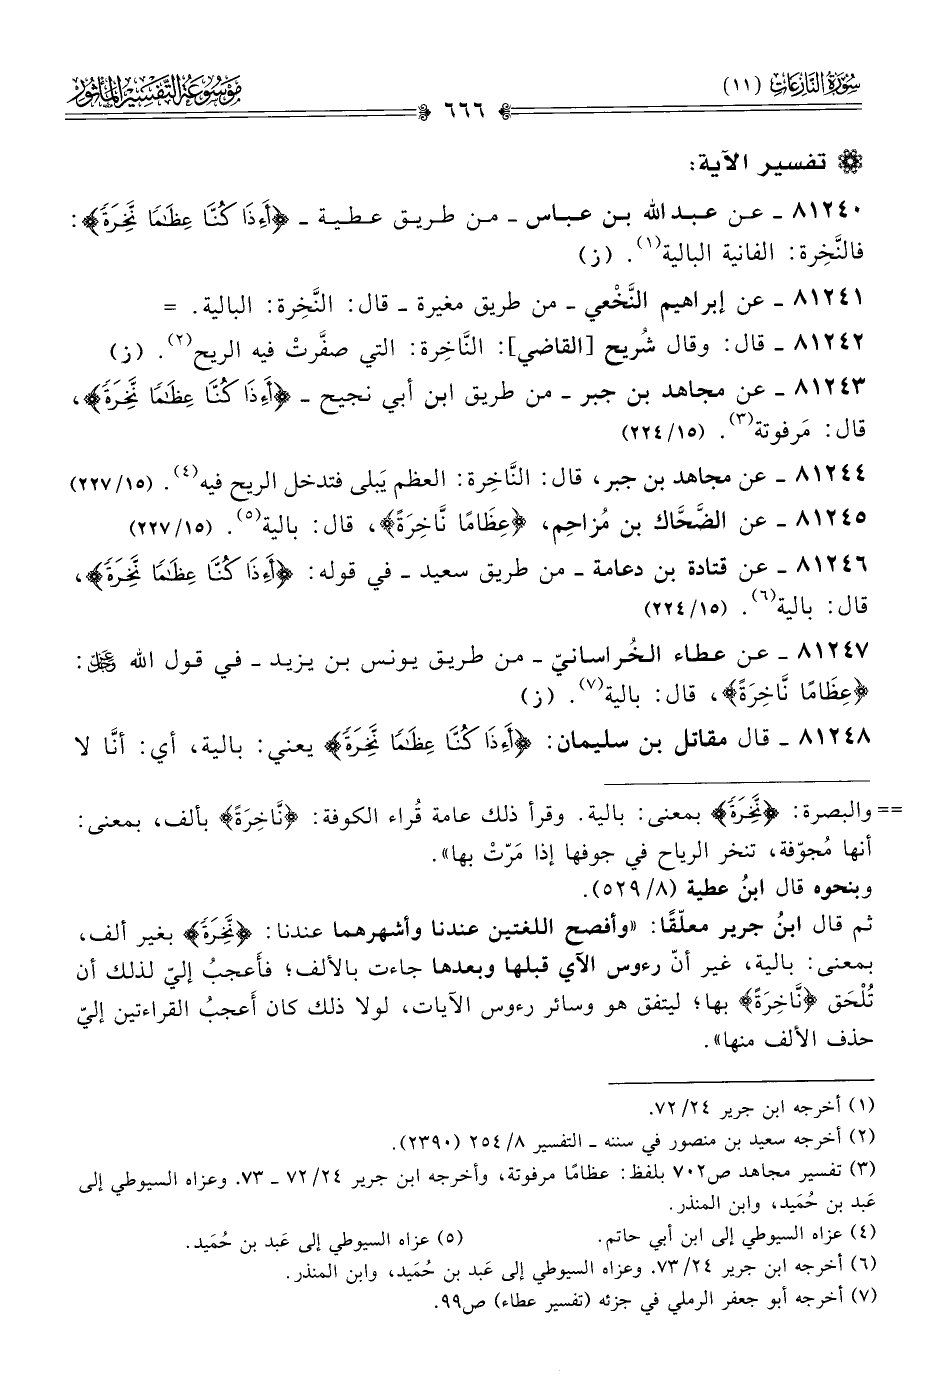 سورة النازعات (١١)
٦٦٦
موسوعة التفسير المأثور
تفسير الآية:
٨١٢٤٠ ـ عن عبد الله بن عباس ـ من طريق عطية ـ ﴿أَءِذَا كُنَّا عِظَٰمًا نَّخِرَةً﴾:
فالنَّخِرة: الفانية البالية(١). (ز)
٨١٢٤١ ـ عن إبراهيم النَّخْعي ـ من طريق مغيرة ـ قال: النَّخِرة: البالية. =
٨١٢٤٢ ـ قال: وقال شُريح [القاضي]: النَّاخِرة: التي صفَّرتْ فيه الريح(٢). (ز)
٨١٢٤٣ ـ عن مجاهد بن جبر ـ من طريق ابن أبي نجيح ـ ﴿أَءِذَا كُنَّا عِظَٰمًا نَّخِرَةً﴾،
قال: مَرفوتة(٣). (١٥/ ٢٢٤)
٨١٢٤٤ ـ عن مجاهد بن جبر، قال: النَّاخِرة: العظم يَبلى فتدخل الريح فيه(٤). (١٥/ ٢٢٧)
٨١٢٤٥ ـ عن الضَّحَّاك بن مُزاحِم، ﴿عِظَامًا نَّاخِرَةً﴾، قال: بالية(٥). (١٥/ ٢٢٧)
٨١٢٤٦ ـ عن قتادة بن دعامة ـ من طريق سعيد ـ في قوله: ﴿أَءِذَا كُنَّا عِظَٰمًا نَّخِرَةً﴾،
قال: بالية(٦). (١٥/ ٢٢٤)
٨١٢٤٧ ـ عن عطاء الخُراسانيّ ـ من طريق يونس بن يزيد ـ في قول الله ﷿:
﴿عِظَامًا نَّاخِرَةً﴾، قال: بالية(٧). (ز)
٨١٢٤٨ ـ قال مقاتل بن سليمان: ﴿أَءِذَا كُنَّا عِظَٰمًا نَّخِرَةً﴾ يعني: بالية، أي: أنَّا لا
== والبصرة: ﴿نَّخِرَةً﴾ بمعنى: بالية. وقرأ ذلك عامة قُراء الكوفة: ﴿نَّاخِرَةً﴾ بألف، بمعنى:
أنها مُجوّفة، تنخر الرياح في جوفها إذا مَرّتْ بها».
وبنحوه قال ابنُ عطية (٨/ ٥٢٩).
ثم قال ابنُ جرير معلّقًا: «وأفصح اللغتين عندنا وأشهرهما عندنا: ﴿نَّخِرَةً﴾ بغير ألف،
بمعنى: بالية، غير أنّ رءوس الآي قبلها وبعدها جاءت بالألف؛ فأَعجبُ إليّ لذلك أن
تُلْحَق ﴿نَّاخِرَةً﴾ بها؛ ليتفق هو وسائر رءوس الآيات، لولا ذلك كان أَعجبُ القراءتين إليّ
حذف الألف منها».
(١) أخرجه ابن جرير ٢٤/ ٧٢.
(٢) أخرجه سعيد بن منصور في سننه ـ التفسير ٨/ ٢٥٤ (٢٣٩٠).
(٣) تفسير مجاهد ص٧٠٢ بلفظ: عظامًا مرفوتة، وأخرجه ابن جرير ٢٤/ ٧٢ ـ ٧٣. وعزاه السيوطي إلى
عَبد بن حُمَيد، وابن المنذر.
(٤) عزاه السيوطي إلى ابن أبي حاتم. (٥) عزاه السيوطي إلى عَبد بن حُمَيد.
(٦) أخرجه ابن جرير ٢٤/ ٧٣. وعزاه السيوطي إلى عَبد بن حُمَيد، وابن المنذر.
(٧) أخرجه أبو جعفر الرملي في جزئه (تفسير عطاء) ص٩٩.